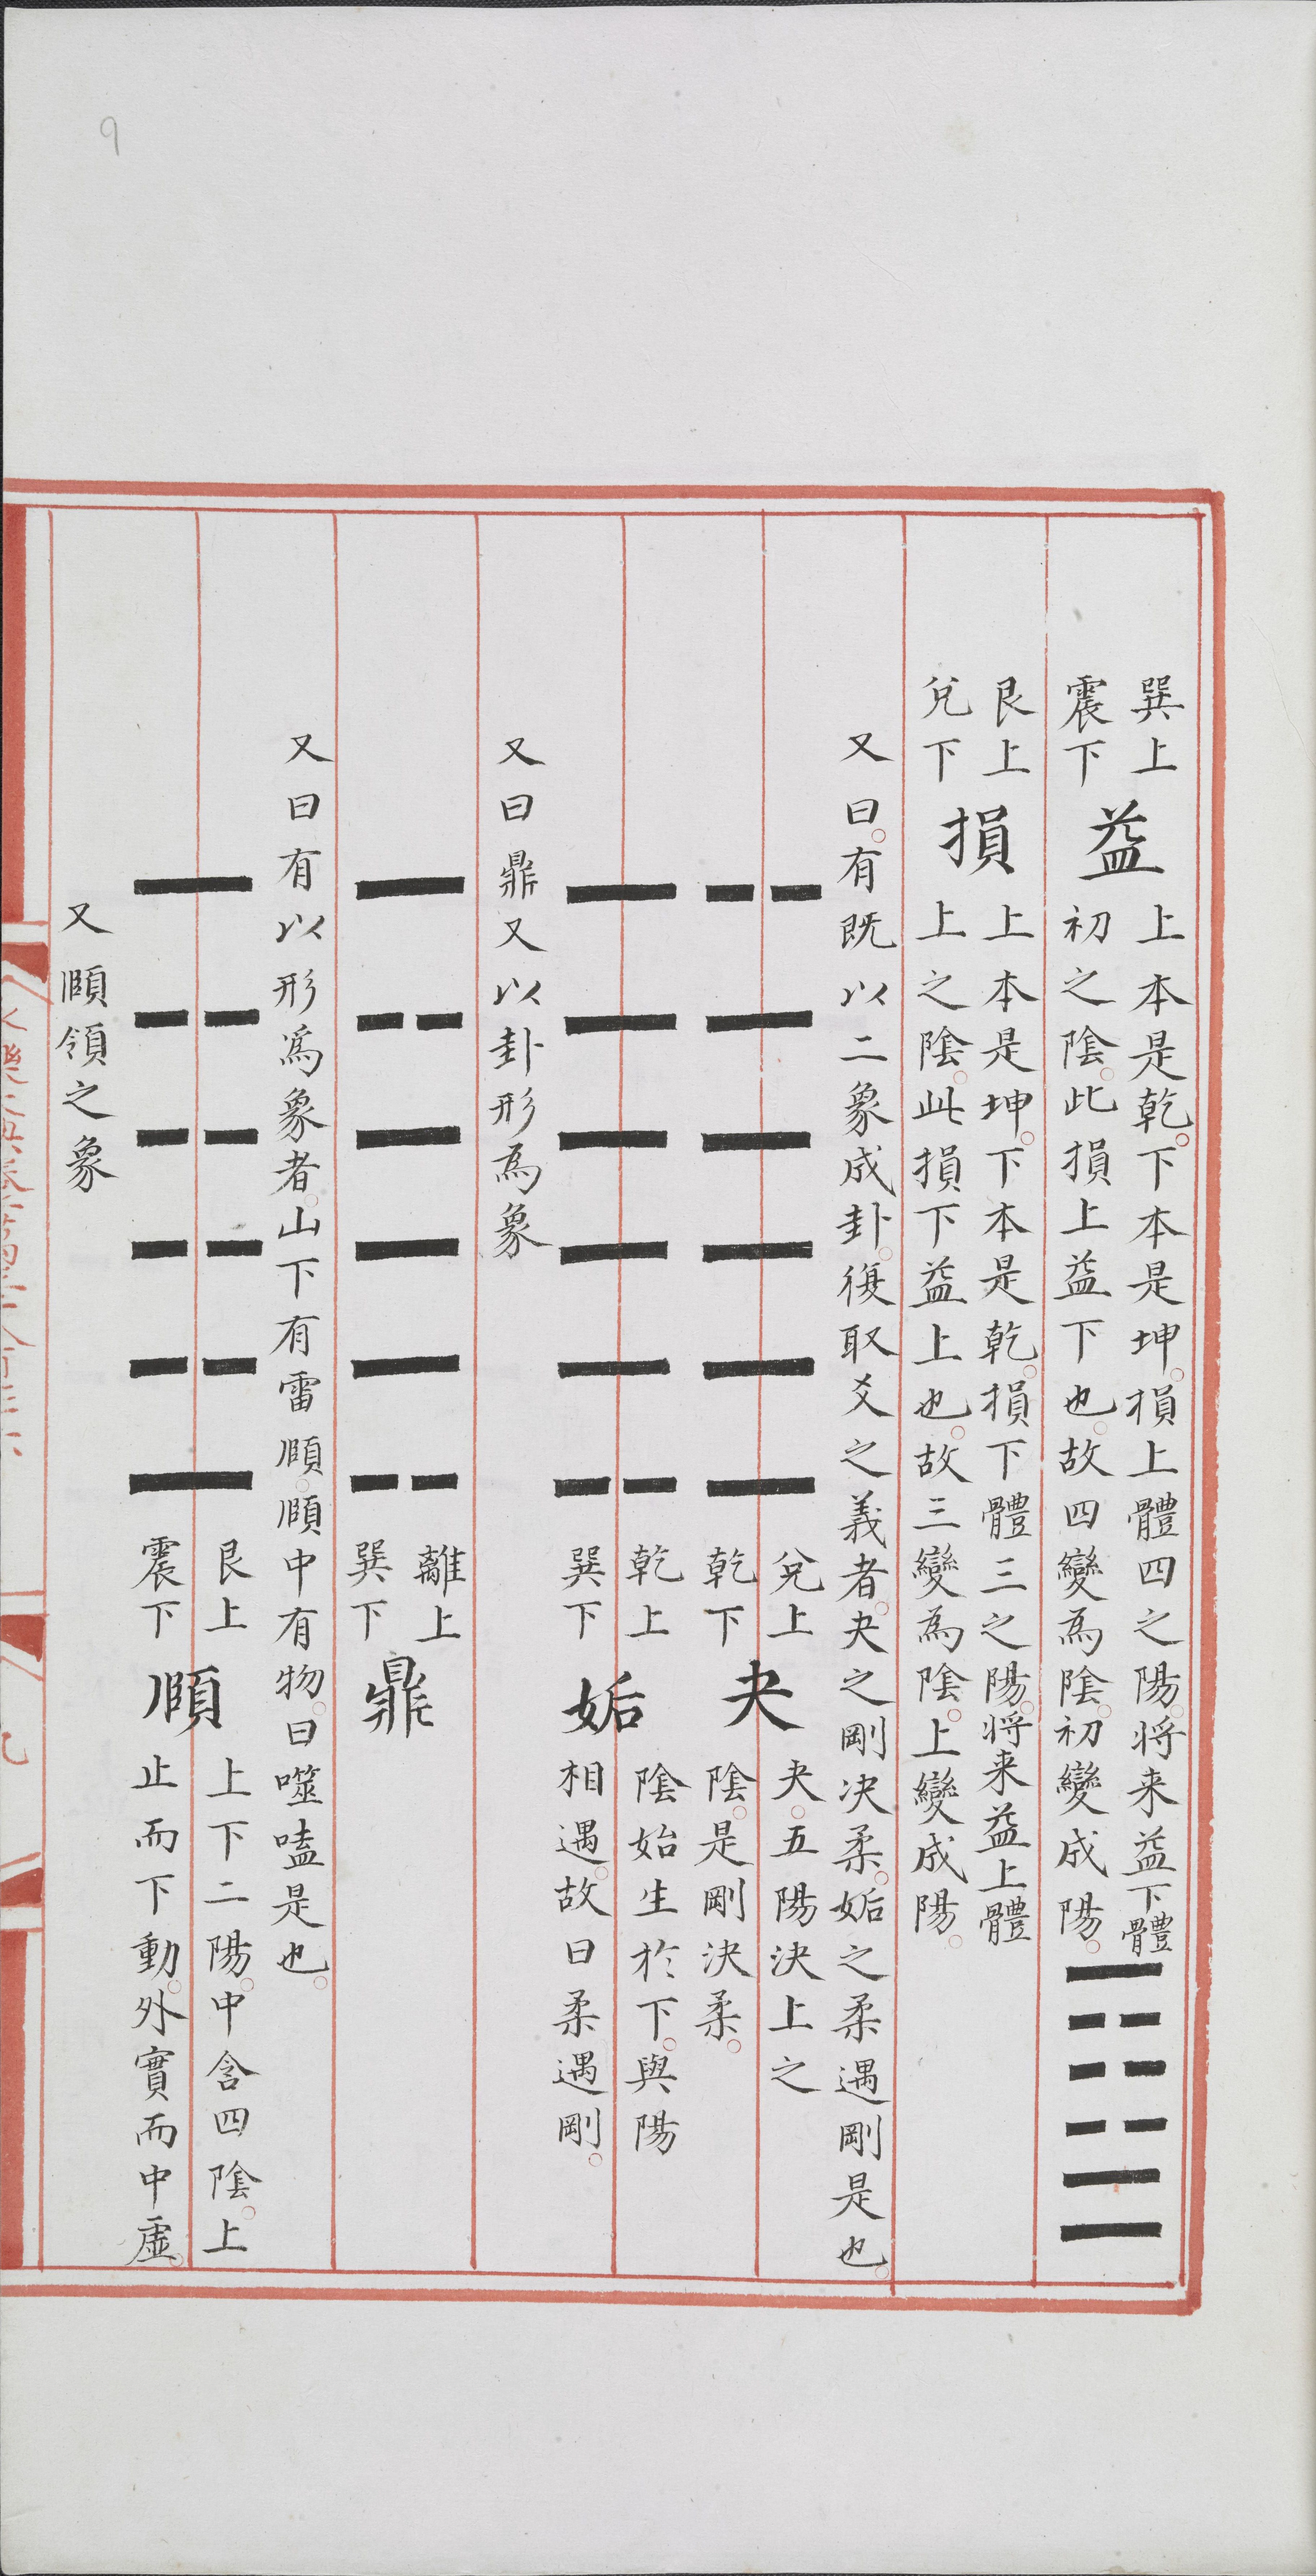 巽上
震下
益
上本是乾下本是坤損上體四之陽將来益下體
初之陰此損上益下也故四變為陰初變成陽
艮上
兌下
損
上本是坤下本是乾損下體三之陽將来益上體
上之陰此損下益上也故三變為陰上變成陽
又曰有既以二象成卦復取爻之義者夬之剛决柔姤之柔遇剛是也
兌上
乾下
夬
夬五陽決上之
陰是剛決柔
乾上
巽下
姤
陰始生於下與陽
相遇故曰柔遇剛
又曰鼎又以卦形為象
離上
巽下
鼎
又曰有以形爲象者山下有雷頤頤中有物曰噬嗑是也
艮上
震下
頤
上下二陽中含四陰上
止而下動外實而中虛
又頤頷之象
9